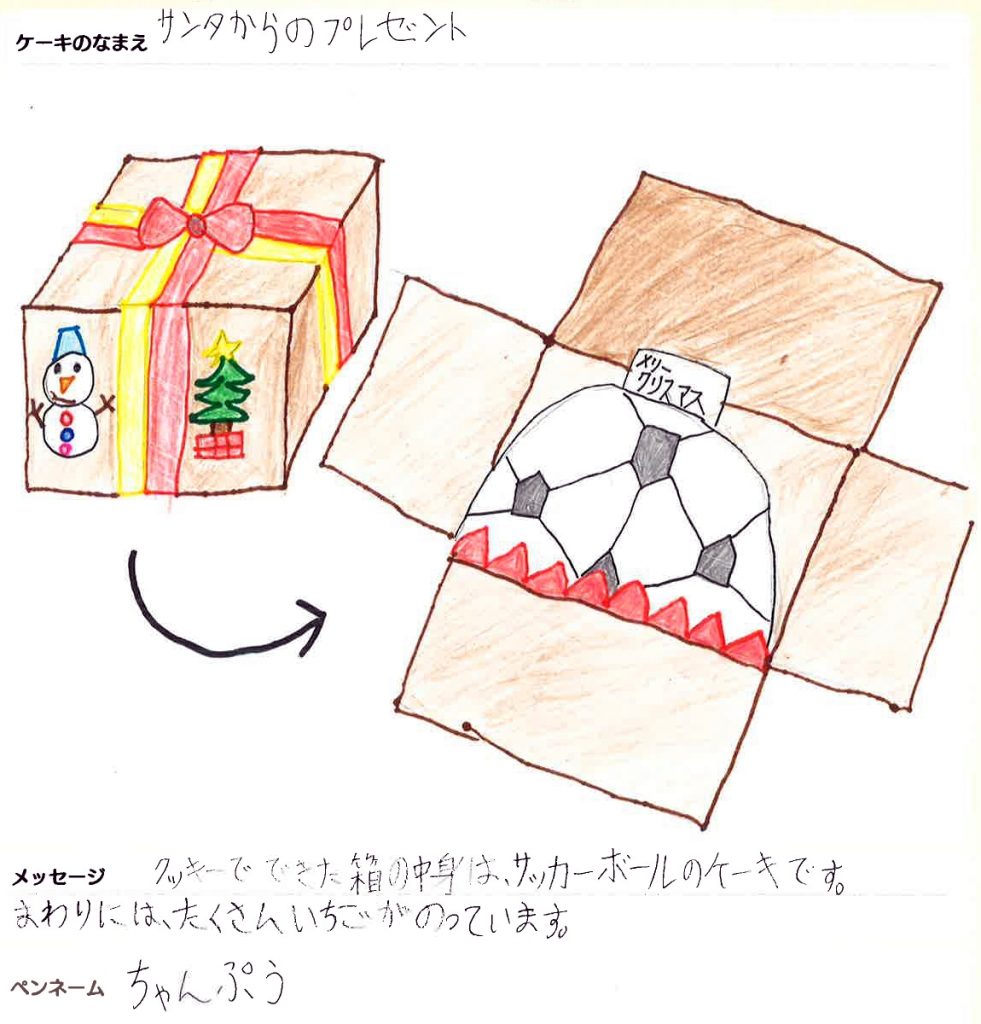 ケーキのなまえ サンタからのプレゼント
メリー
クリスマス
メッセージ クッキーでできた箱の中身は、サッカーボールのケーキです。
まわりには、たくさんいちごがのっています。
ペンネーム ちゃんぷう